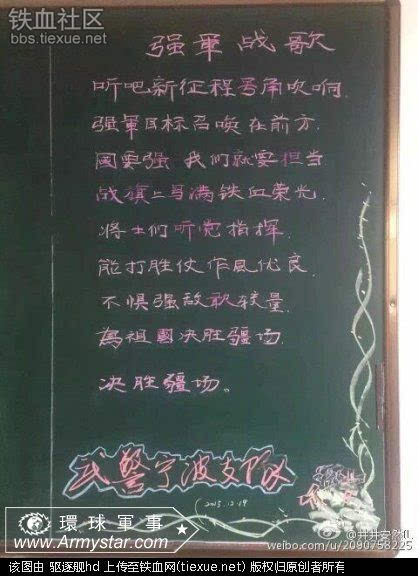 铁血社区
bbs.tiexue.net
强軍战歌
听吧新征程号角吹响.
强軍目标召唤在前方.
國要强 我们就要担当
战旗上写满铁血荣光.
將士们听党指挥.
能打胜仗作風优良.
不惧强敌敢较量.
為祖國决胜疆场.
决胜疆场。
武警宁波支队
2013.12.19
環球軍事
www.Armystar.com
weibo.com/u/2090758225
该图由 驱逐舰hd 上传至铁血网(tiexue.net) 版权归原创者所有